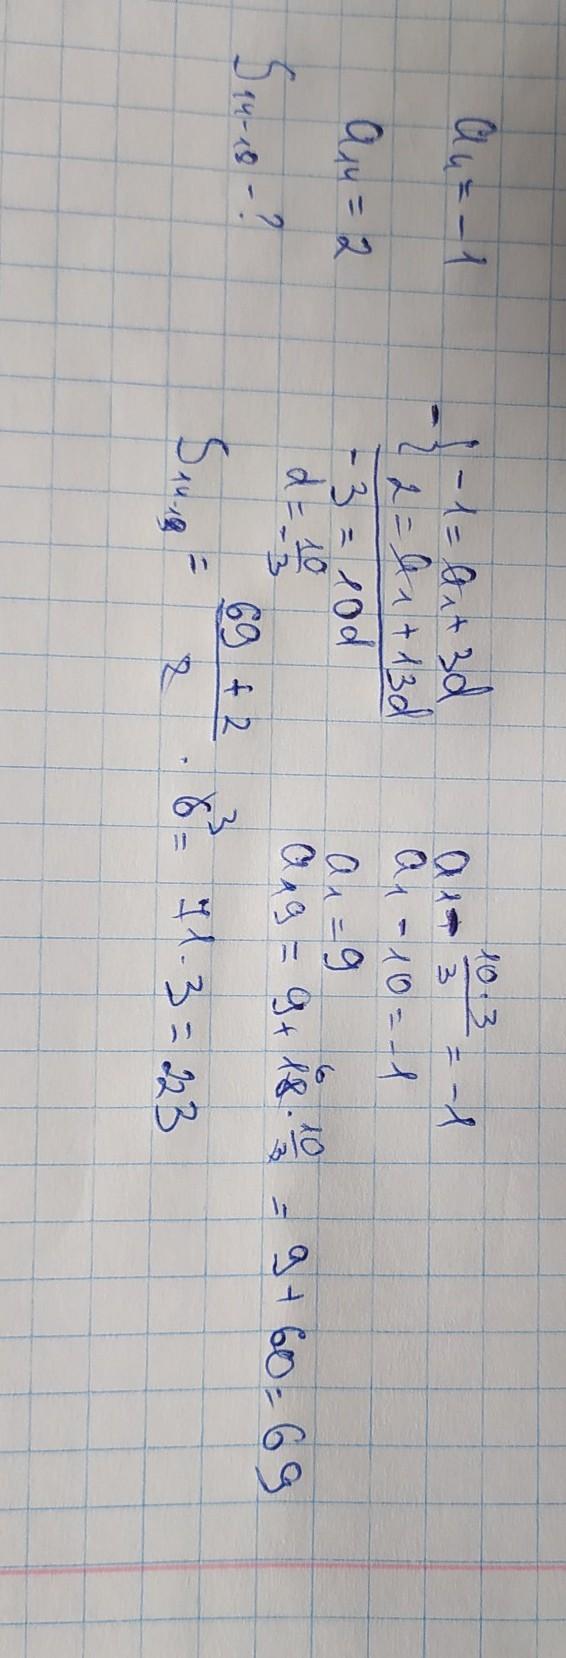 a₄ = -1
a₁₄ = 2
S₁₄₋₁₉ - ?
- { -1 = a₁ + 3d
2 = a₁ + 13d
-3 = 10d
d = 10/-3
a₁ - 10·3/3 = -1
a₁ - 10 = -1
a₁ = 9
a₁₉ = 9 + 18⁶ · 10/3 = 9 + 60 = 69
S₁₄₋₁₉ = 69 + 2 / 2 · 6³ = 71 · 3 = 223